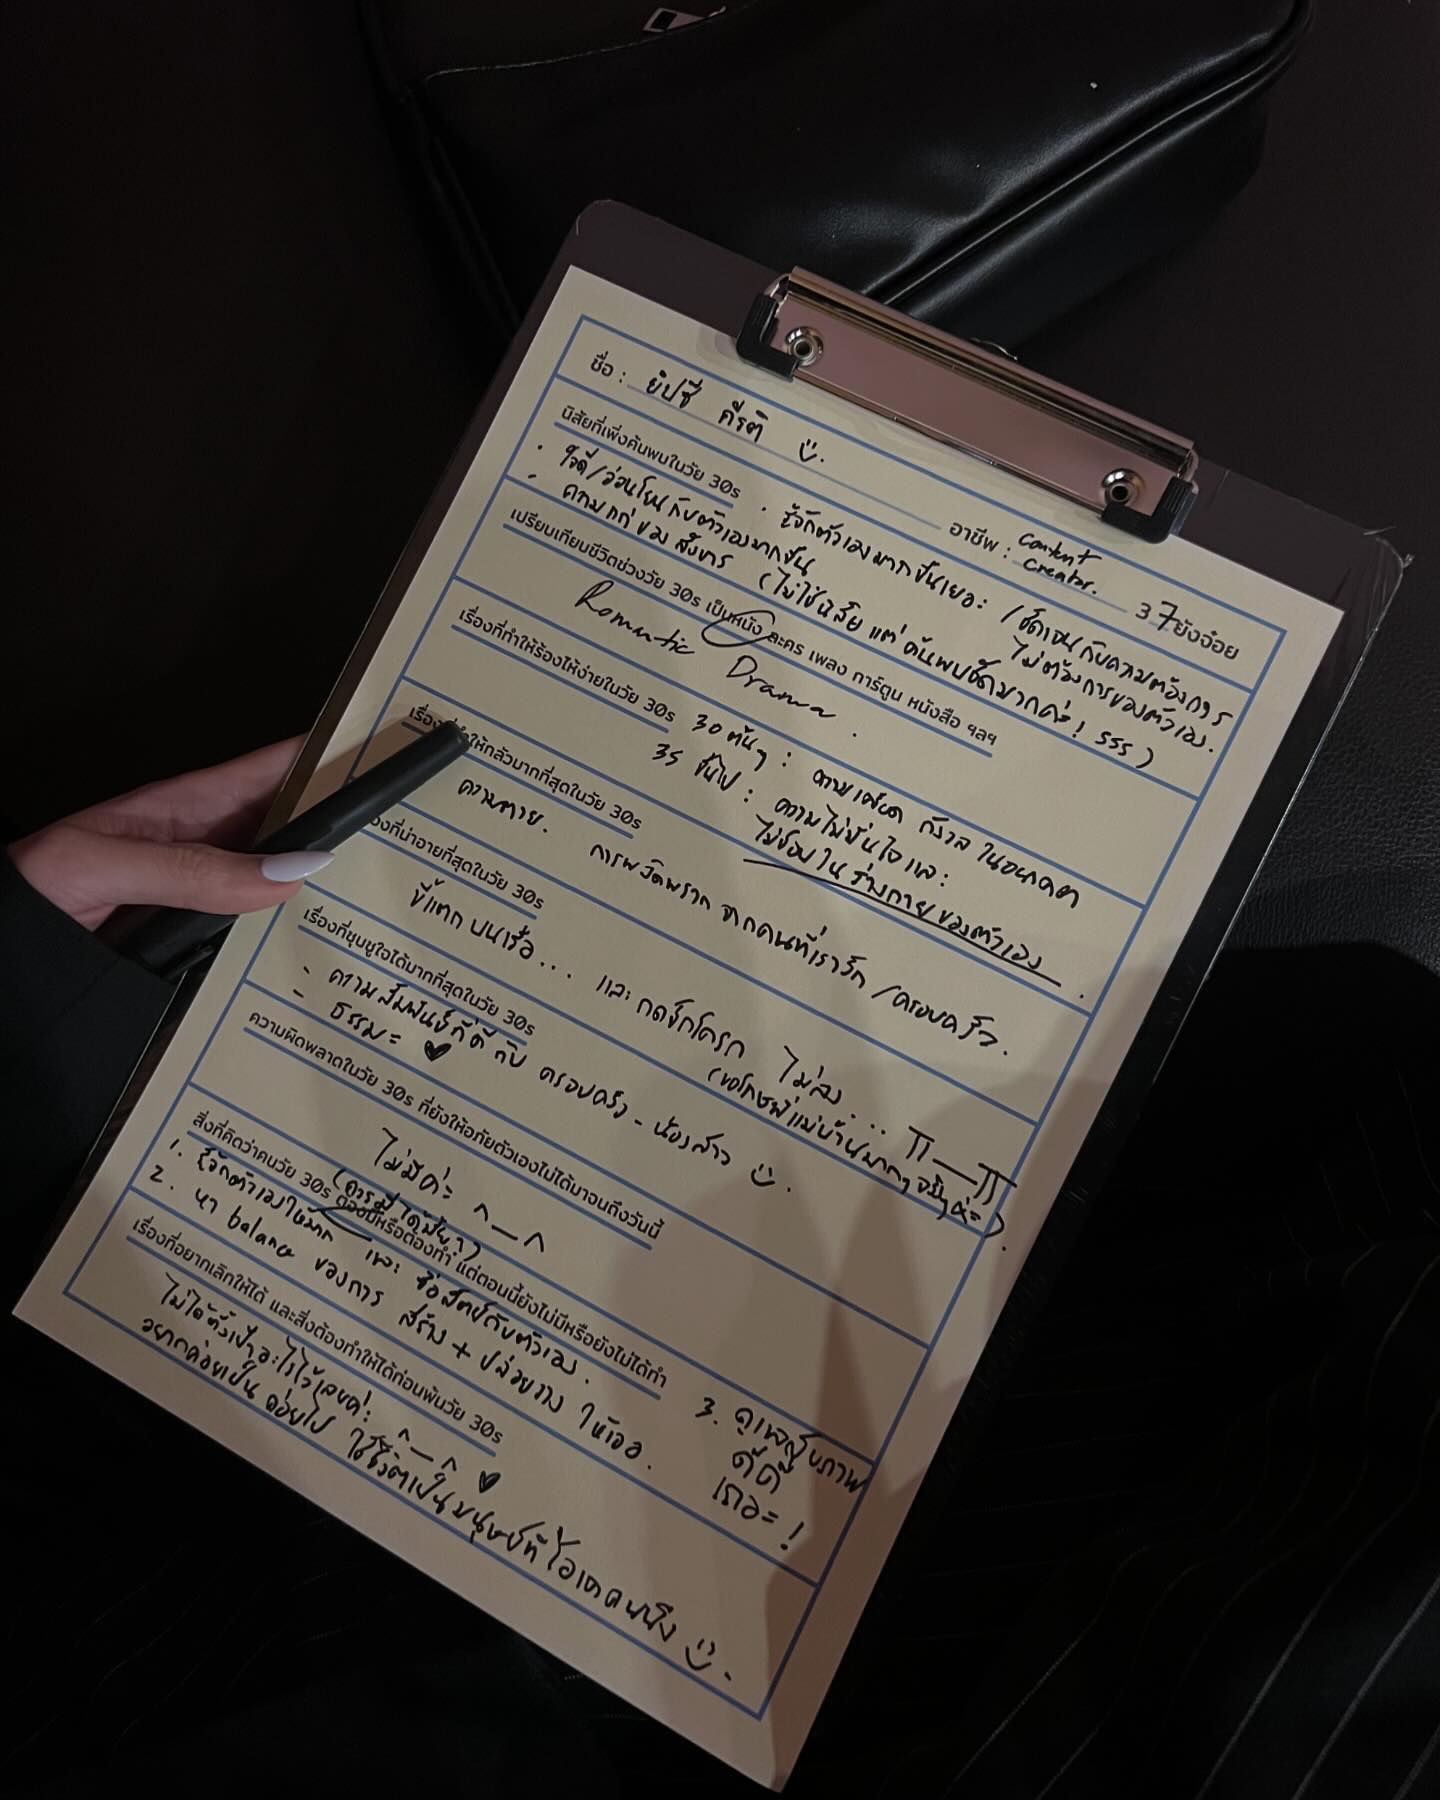 ชื่อ : ยิปซี คีรติ อาชีพ : content creator. 37 ยังจ๋อย
นิสัยที่เพิ่งค้นพบในวัย 30s · รู้จักตัวเองมากขึ้นเยอะ / ชัดเจนกับความต้องการ
ไม่ต้องการของตัวเอง.
· ใจดี/อ่อนโยนกับตัวเองมากขึ้น
· ความแก่ของสังขาร (ไม่ใช่นิสัย แต่ค้นพบชัดมากค่ะ! 555)
เปรียบเทียบชีวิตช่วงวัย 30s เป็นหนัง ละคร เพลง การ์ตูน หนังสือ ฯลฯ
Romantic Drama.
เรื่องที่ทำให้ร้องไห้ง่ายในวัย 30s 30 ต้นๆ : ความเครียด กังวล ในอนาคต
35 ขึ้นไป : ความไม่มั่นใจและ
ไม่ชอบในร่างกายของตัวเอง.
เรื่องที่ทำให้กลัวมากที่สุดในวัย 30s
ความตาย. การพลัดพราก จากคนที่เรารัก /ครอบครัว.
เรื่องที่น่าอายที่สุดในวัย 30s
ขี้แตก บนเรือ... และ กดชักโครก ไม่ลง... TT__TT
(ขอโทษพี่แม่บ้านมากๆ จริงๆค่ะ)
เรื่องที่ชุบชูใจได้มากที่สุดในวัย 30s
- ความสัมพันธ์ที่ดีกับ ครอบครัว - น้องสาว
- ธรรมะ ♥
ความผิดพลาดในวัย 30s ที่ยังให้อภัยตัวเองไม่ได้มาจนถึงวันนี้
ไม่มีค่ะ ^__^
สิ่งที่คิดว่าคนวัย 30s ต้องมีหรือต้องทำ แต่ตอนนี้ยังไม่มีหรือยังไม่ได้ทำ
1. รู้จักตัวเองให้มาก และ ซื่อสัตย์กับตัวเอง.
2. หา balance ของการ สร้าง + ปล่อยวาง ให้เจอ.
3. ดูแลสุขภาพ
ดีดี
เถอะ!
เรื่องที่อยากเลิกให้ได้ และสิ่งต้องทำให้ได้ก่อนพ้นวัย 30s
ไม่ได้ตั้งเป้าอะไรไว้เลยค่ะ ^__^ ♥
อยากค่อยเป็น ค่อยไป ใช้ชีวิตเป็นมนุษย์ที่โอเคคนนึง